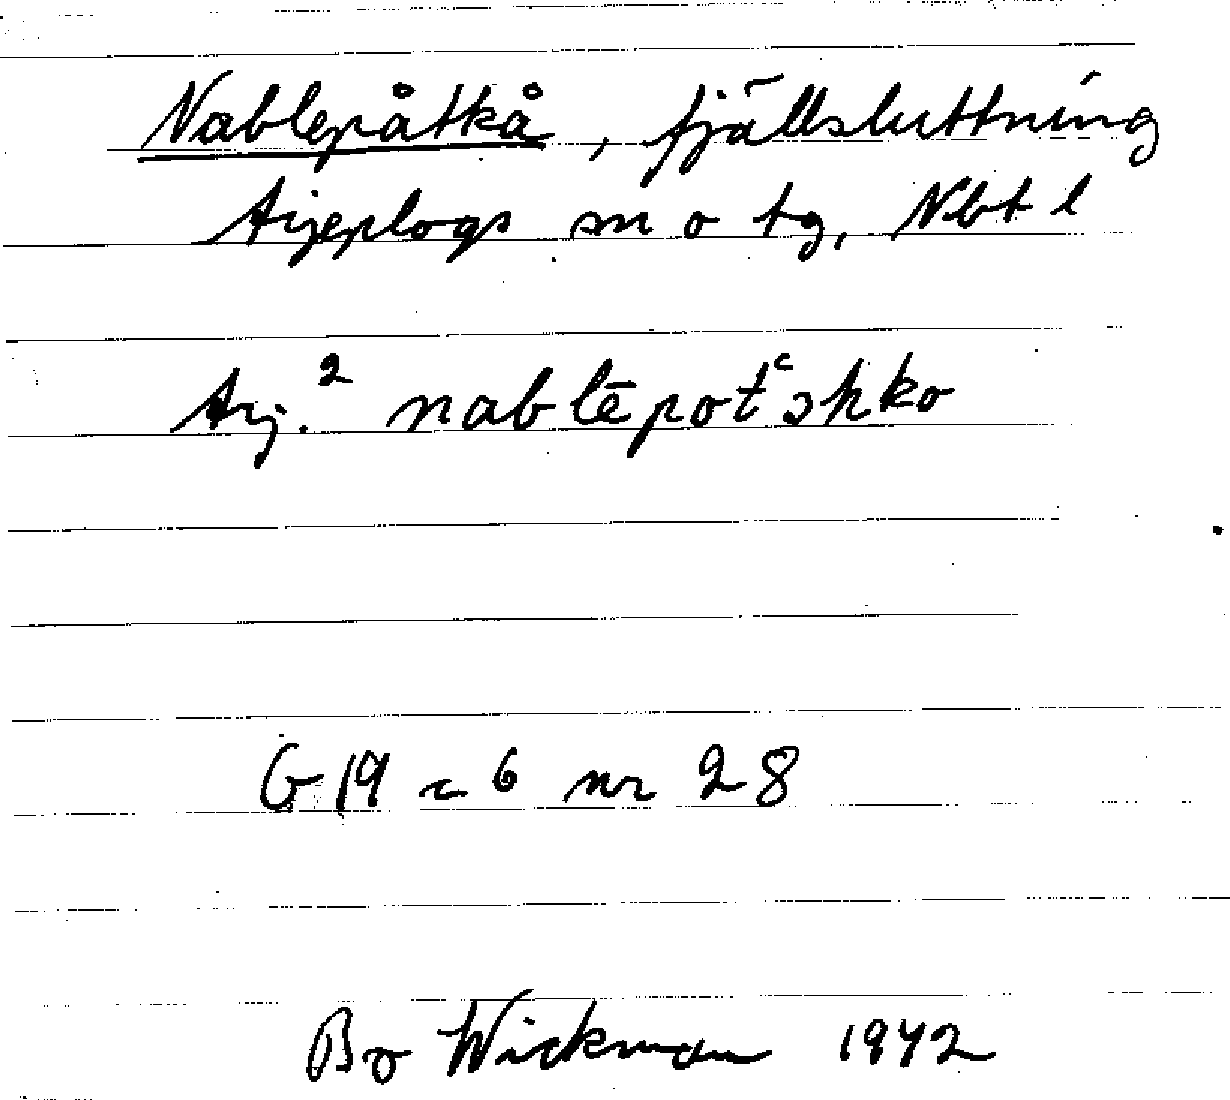 Nablepåtkå, fjällsluttning
Arjeplogs sn o tg, Nbt l
Arj.² nablēpotʿɔhko
G 19 c 6 nr 28
Bo Wickman 1942